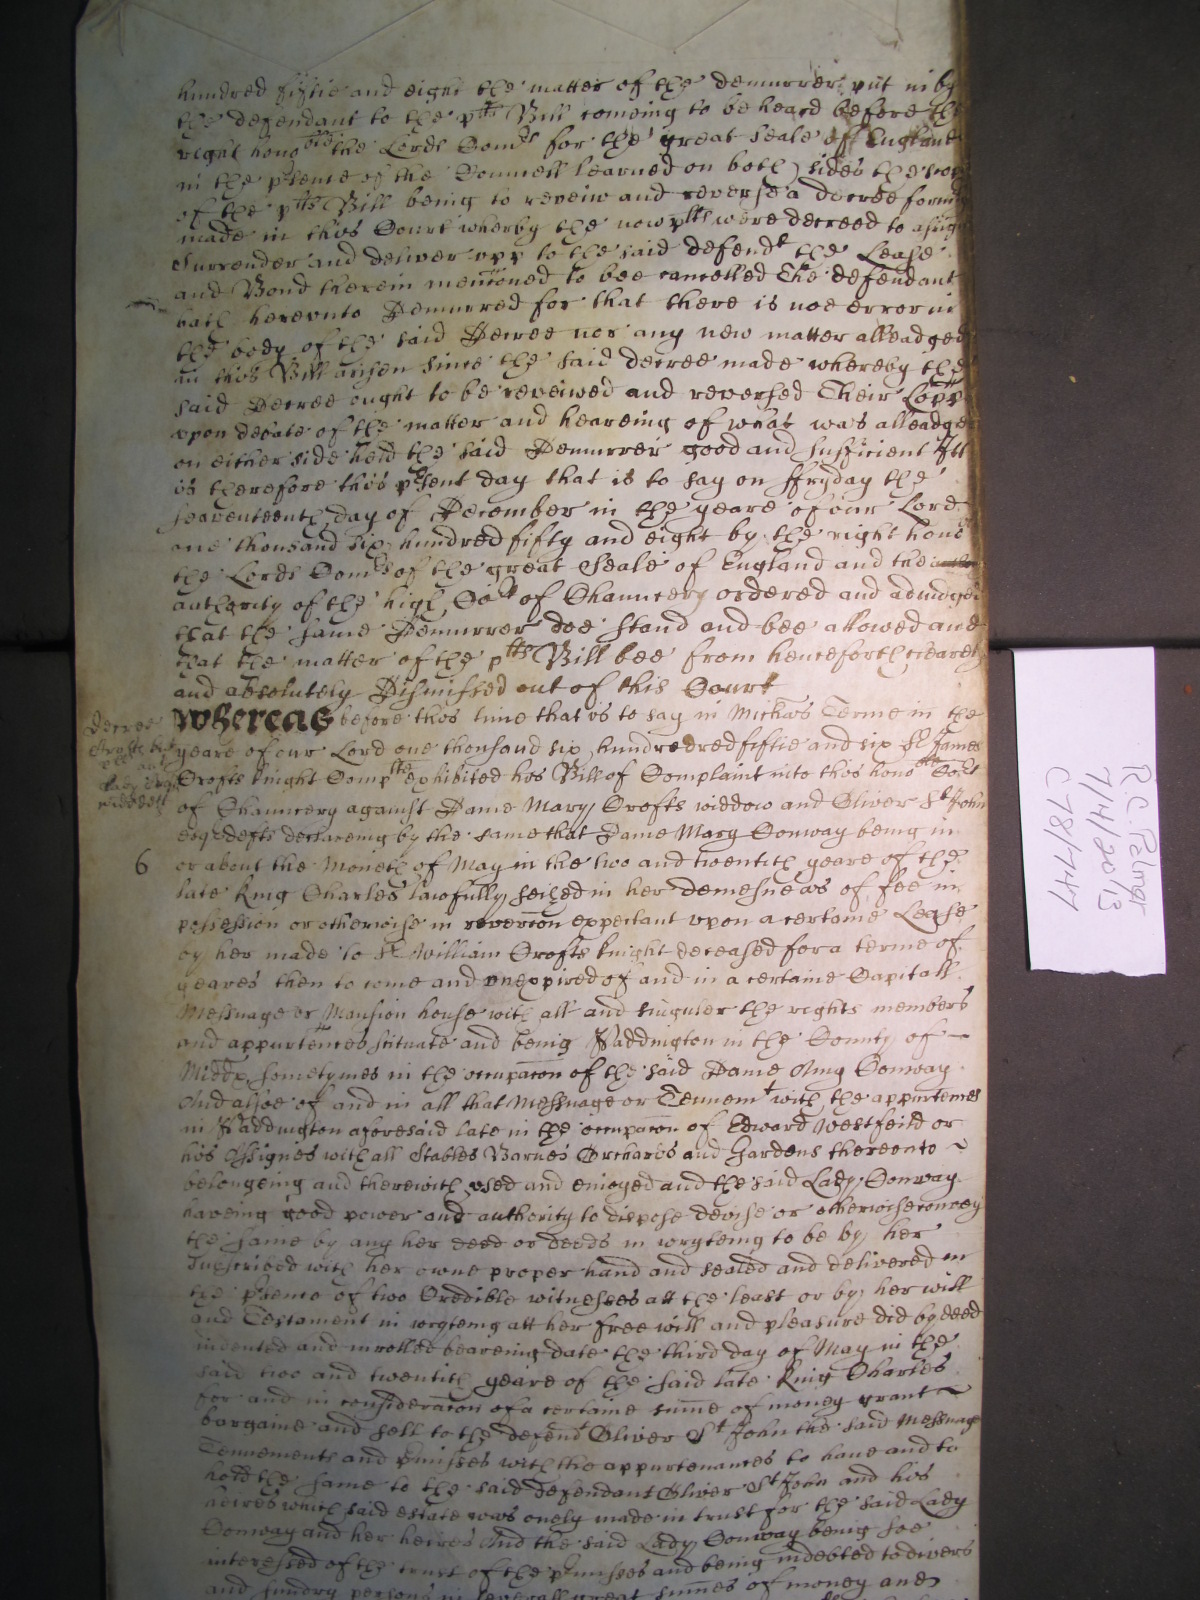 hundred fiftie and eight the matter of the demurrer put in by
the defendant to the pltts Bill comeing to be heard before the
right honoble the Lords Comrs for the great Seale of England
in the psence of the Councell learned on both sides the scope
of the pltts Bill being to reveiw and reverse a decree formerly
made in this Court wherby the now pltts were decreed to assigne
Surrender and deliver upp to the said defendt the Lease
and Bond therein mencioned to bee cancelled The defendant
hath hereunto Demurred for that there is noe error in
the body of the said Decree nor any new matter alleadged
in this Bill arisen since the said decree made whereby the
said Decree ought to be reveiwed and reversed Their Lopps
upon debate of the matter and heareing of what was alleadged
on either side held the said Demurrer good and sufficient Itt
is therefore this psent day that is to say on ffryday the
seaventeenth day of December in the yeare of our Lord
one thousand six hundred fifty and eight by the right honoble
the Lords Comrs of the great Seale of England and the
authority of the high Cort of Chauncery ordered and adiudged
that the same Demurrer doe stand and bee allowed and
that the matter of the pltts Bill bee from henceforth clearely
and absolutely Dismissed out of this Court
Whereas before this time that is to say in Michas Terme in the
yeare of our Lord one thousand six hundredred fiftie and six Sr James
Crofts knight Complte exhibited his Bill of Complaint into this honoble Cort
of Chauncery against Dame Mary Crofts widdow and Oliver St John
esqr defts declareing by the same that Dame Mary Conway being in
6
or about the Moneth of May in the two and twentith yeare of the
late King Charles lawfully seized in her demesne as of fee in
possession or otherwise in revercon expectant upon a certaine Lease
by her made to Sr William Crofts knight deceased for a terme of
yeares then to come and unexpired of and in a certaine Capitall
Messuage or Mansion house with all and singuler the rights members
and appurtences scituate and being Paddington in the County of
Middx sometymes in the occupacon of the said Dame Conway
And alsoe of and in all that Messuage or Tennemt with the appurtences
in Paddington aforesaid late in the occupacon of Edward Westfeild or
his Assignes with all Stables Barnes Orchards and Gardens thereunto
belongeing and therewith used and enioyed and the said Lady Conway
haveing good power and authority to dispose devise or otherwise convey
the same by any her deed or deeds in wryteing to be by her
Subscribed with her owne proper hand and sealed and delivered in
the psence of two Credible witnesses att the least or by her will
and Testament in wryteing att her free will and pleasure did by deed
indented and inrolled beareing date the third day of May in the
said two and twentith yeare of the said late King Charles
for and in consideracon of a certaine summe of money grant
bargaine and sell to the defendt Oliver St John the said Messuage
Tennements and pmisses with the appurtenances to have and to
hold the same to the said defendant Oliver St John and his
heires which said estate was onely made in trust for the said Lady
Conway and her heires And the said Lady Conway being soe
interessed of the trust of the pmisses and being indebted to divers
and sundry persons in severall great summes of money and
R.C. Palmer
7/14/2013
C 78/747